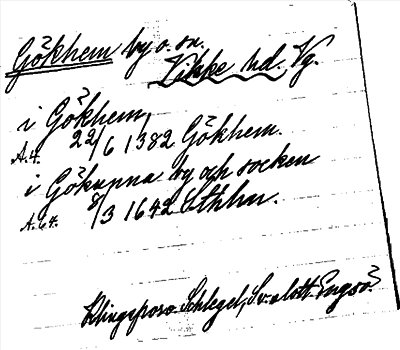 Gökhem by o. sn.
Vilske hd. Vg.
i Gökhem,
A.4. 22/6 1382 Gökhem.
i Gökunna by och socken
A.64. 8/3 1642 Sthlm.
Klingspor o. Schlegel, Sv. slott. Engsö